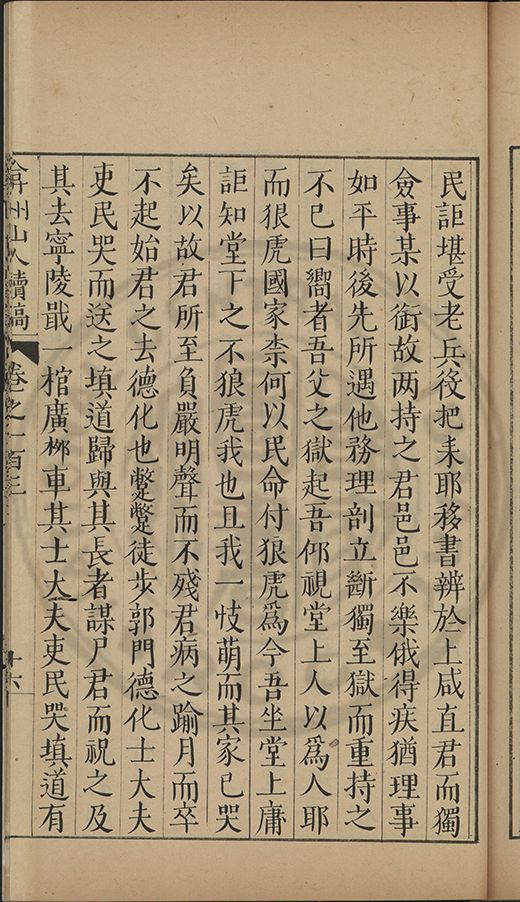 民詎堪受老兵後把耒耶移書辨於上咸直君而獨
僉事某以銜故两持之君邑邑不樂俄得疾猶理事
如平時後先所遇他務理剖立斷獨至獄而重持之
不已曰嚮者吾父之獄起吾仰視堂上人以為人耶
而狠虎國家柰何以民命付狼虎為今吾坐堂上庸
詎知堂下之不狼虎我也且我一忮萌而其家已哭
矣以故君所至負嚴明聲而不殘君病之踰月而卒
不起始君之去德化也蹩蹩徒步郭門德化士大夫
吏民哭而送之填道歸與其長者謀尸君而祝之及
其去寧陵戢一棺廣栁車其士大夫吏民哭填道有
弇州山人續稿 卷之一百三 十六